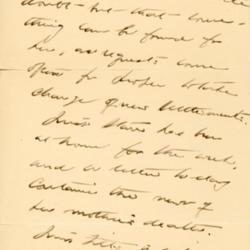 doubt - but - that some -
thing can be found for
her, as requests come
often for proper
change of new settlements.
Miss has been
at home for the week,
and a letter to-day
contains the news of
her mother's death.
Miss